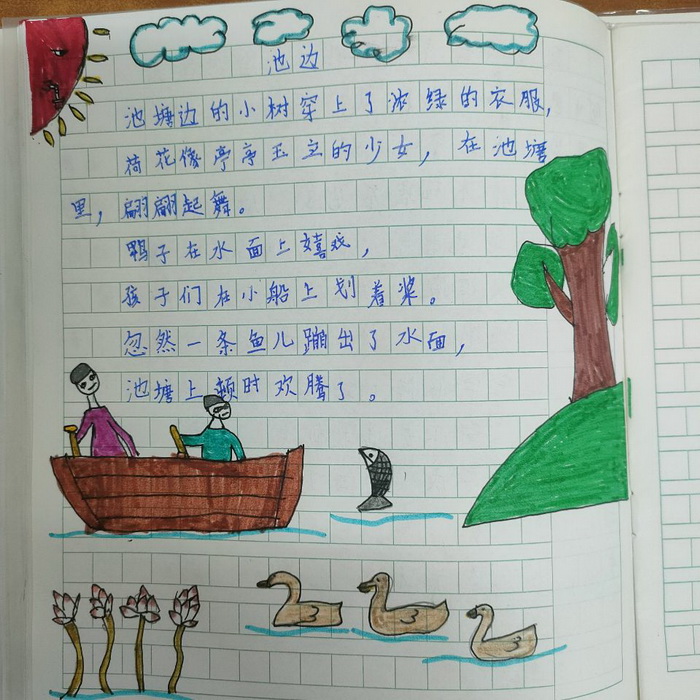 池边
池塘边的小树穿上了浓绿的衣服，
荷花像亭亭玉立的少女，在池塘
里，翩翩起舞。
鸭子在水面上嬉戏，
孩子们在小船上划着桨。
忽然一条鱼儿蹦出了水面，
池塘上顿时欢腾了。